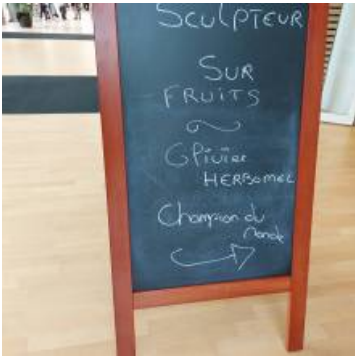 SCULPTEUR
SUR
FRUITS
HERBOMEL
Champion du
Monde